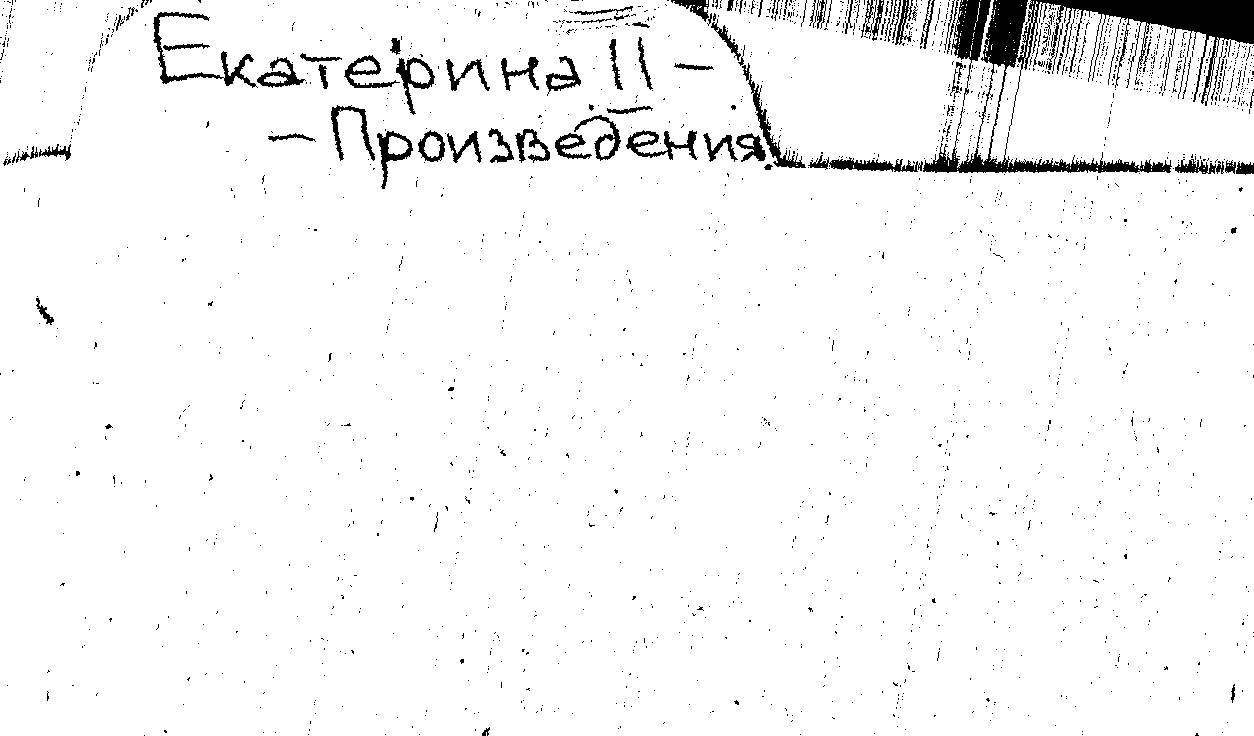 Екатерина II -
- Произведения